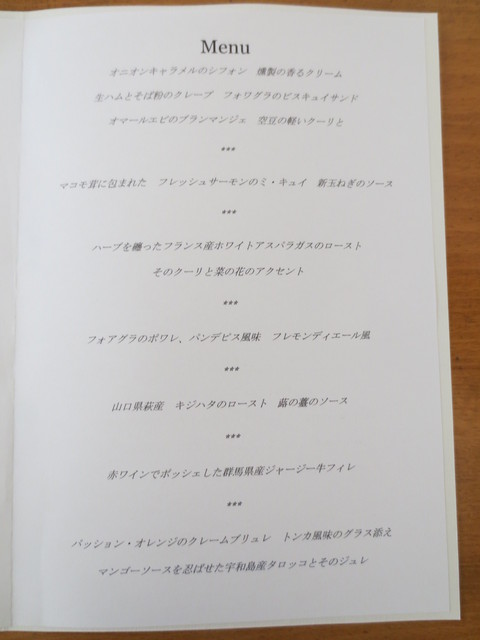 Menu
オニオンキャラメルのシフォン　燻製の香るクリーム
生ハムとそば粉のクレープ　フォワグラのビスキュイサンド
オマールエビのブランマンジェ　空豆の軽いクーリと
***
マコモ茸に包まれた　フレッシュサーモンのミ・キュイ　新玉ねぎのソース
***
ハーブを纏ったフランス産ホワイトアスパラガスのロースト
そのクーリと菜の花のアクセント
***
フォアグラのポワレ、パンデピス風味　フレモンディエール風
***
山口県萩産　キジハタのロースト　蕗の薹のソース
***
赤ワインでポッシェした群馬県産ジャージー牛フィレ
***
パッション・オレンジのクレームブリュレ　トンカ風味のグラス添え
マンゴーソースを忍ばせた宇和島産タロッコとそのジュレ